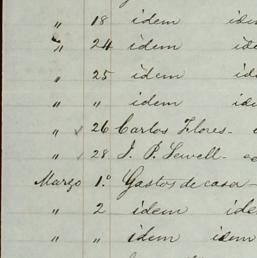 " 18 idem idem
" 24 idem ide
" 25 idem ide
" " idem ide
" 26 Carlos Flores-
" 28 J. P. Sewell-
Março 1.º Gastos de casa-
" 2 idem ide
" " idem idem